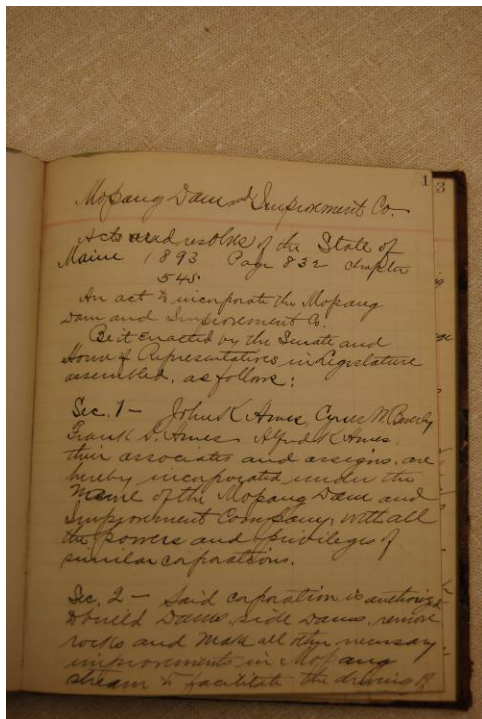 1
3
Mopang Dam and Improvement Co.
Acts and resolves of the State of
Maine 1893 Page 832 chapter
545
An act to incorporate the Mopang
Dam and Improvement Co.
Be it Enacted by the Senate and
House of Representatives in Legislature
assembled, as follows:
Sec. 1 — John K Ames, Cyrus M. Beverly
Frank S. Ames Alfred K Ames.
their associates and assigns, are
hereby incorporated under the
Name of the Mopang Dam and
Improvement Company, with all
the powers and privileges of
similar corporations.
Sec. 2 — Said corporation is authorized
to build Dams, side Dams, remove
rocks and make all other necessary
improvements in Mopang
stream to facilitate the driving of